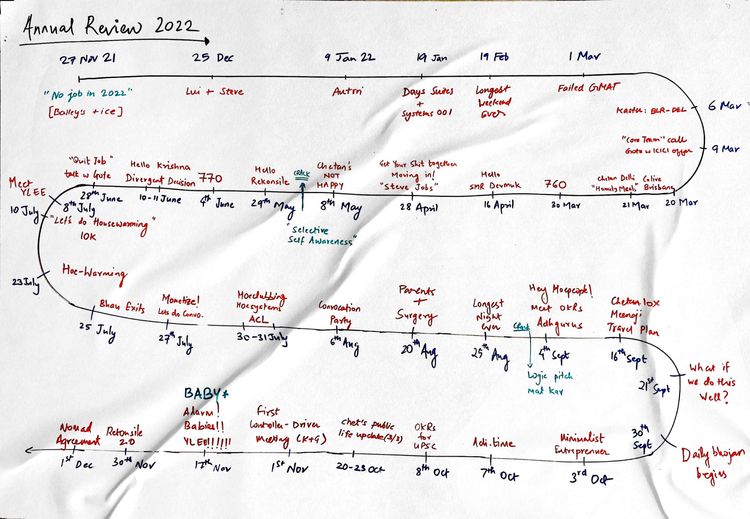 Annual Review 2022
27 Nov 21
25 Dec
9 Jan 22
19 Jan
19 Feb
1 Mar
"No job in 2022"
[Baileys + ice]
Lui + Steve
Autri
Days Suites
+
Systems 001
Longest
weekend
ever
Failed GMAT
BLR-DEL
6 Mar
"Core Team" call
9 Mar
"Quit Job"
talk w
Hello Krishna
Divergent Decision
770
Hello
Rekonsile
CRACK
Chetan's
NOT
HAPPY
Get Your Shit together
Moving in!
"Steve Jobs"
Hello
SMR Devmuk
760
Chetan Delhi
"Homely Meals"
Colive
Brisbang
28th June
10-11 June
4th June
29th May
8th May
28 April
16 April
30 Mar
21 Mar
20 Mar
"Selective
Self Awareness"
Meet
YLEE
8th July
10 July
"Let's do Housewarming"
10K
23 July
Hoe-Warming
Bhau Exits
Monetize!
Lets do Convo.
Hoeclubbing
Hoesystems
ACL
Convocation
Party
Parents
+
Surgery
Longest
Night
Ever
CRACK
Hey Hoepeepl!
Meet OKRs
Adhgurus
Chetan 10x
Meenoji
Travel Plan
25 July
27th July
30-31 July
6th Aug
20th Aug
25th Aug
4th Sept
16th Sept
Logic pitch
mat kar
21st Sept
What if
we do this
Well?
30th
Sept
Daily bhojan
begins
Nomad
Agreement
Rekonsile
2.0
BABY+
Alarm!
Babies!!
YLEE!!!!!!
First
Controller-Driver
Meeting (K+G)
chet's public
life update (2/2)
OKRs
for
UPSC
Adi.time
Minimalist
Entreprenuer
1st Dec
30th Nov
17th Nov
1st Nov
20-23 Oct
8th Oct
7th Oct
3rd Oct